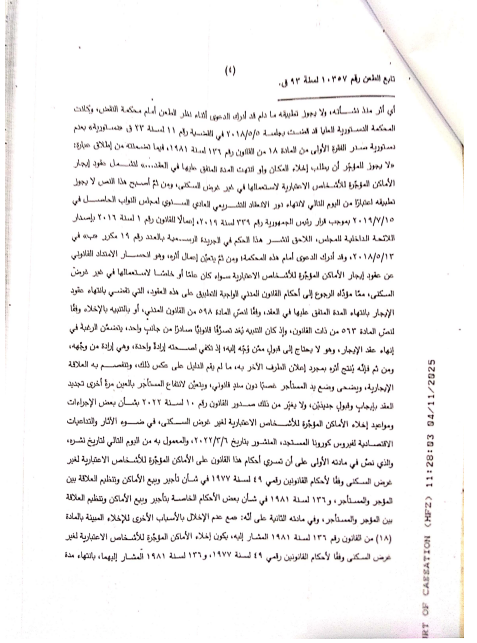 (٤)
تابع الطعن رقم ١٠٣٥٧ لسنة ٩٣ ق.
أي أثر منذ نشأته، ولا يجوز تطبيقه ما دام قد أدرك الدعوى أثناء نظر الطعن أمام محكمة النقض، وكانت
المحكمة الدستورية العليا قد قضت بجلسة ٢٠١٨/٥/٥ في القضية رقم ١١ لسنة ٢٣ ق «دستورية» بعدم
دستورية صدر الفقرة الأولى من المادة ١٨ من القانون رقم ١٣٦ لسنة ١٩٨١، فيما تضمنته من إطلاق عبارة:
«لا يجوز للمؤجر أن يطلب إخلاء المكان ولو انتهت المدة المتفق عليها في العقد،...» لتشمل عقود إيجار
الأماكن المؤجرة للأشخاص الاعتبارية لاستعمالها في غير غرض السكنى، ومن ثم أصبح هذا النص لا يجوز
تطبيقه اعتبارًا من اليوم التالي لانتهاء دور الانعقاد التشريعي العادي السنوي لمجلس النواب الحاصل في
٢٠١٩/٧/١٥ بموجب قرار رئيس الجمهورية رقم ٣٣٩ لسنة ٢٠١٩، إعمالًا للقانون رقم ١ لسنة ٢٠١٦ بإصدار
اللائحة الداخلية للمجلس، اللاحق لنشر هذا الحكم في الجريدة الرسمية بالعدد رقم ١٩ مكرر «ب» في
٢٠١٨/٥/١٣، وقد أدرك الدعوى أمام هذه المحكمة؛ ومن ثم يتعين إعمال أثره، وهو انحسار الامتداد القانوني
عن عقود إيجار الأماكن المؤجرة للأشخاص الاعتبارية سواء كان عامًا أو خاصًا لاستعمالها في غير غرض
السكنى، مما مؤداه الرجوع إلى أحكام القانون المدني الواجبة التطبيق على هذه العقود، التي تقضي بانتهاء عقود
الإيجار بانتهاء المدة المتفق عليها في العقد، وفقًا لنص المادة ٥٩٨ من القانون المدني، أو بالتنبيه بالإخلاء وفقًا
لنص المادة ٥٦٣ من ذات القانون، وإذ كان التنبيه يُعد تصرفًا قانونيًا صادرًا من جانب واحد، يتضمن الرغبة في
إنهاء عقد الإيجار، وهو لا يحتاج إلى قبول ممن وُجه إليه؛ إذ تكفي لصحته إرادة واحدة، وهي إرادة من وجهه،
ومن ثم فإنه يُنتج أثره بمجرد إعلان الطرف الآخر به، ما لم يقم الدليل على عكس ذلك، وتنفصم به العلاقة
الإيجارية، ويضحى وضع يد المستأجر غصبًا دون سندٍ قانوني، ويتعين لانتفاع المستأجر بالعين مرة أخرى تجديد
العقد بإيجابٍ وقبولٍ جديدين، ولا يغير من ذلك صدور القانون رقم ١٠ لسنة ٢٠٢٢ بشأن بعض الإجراءات
ومواعيد إخلاء الأماكن المؤجرة للأشخاص الاعتبارية لغير غرض السكنى، في ضوء الآثار والتداعيات
الاقتصادية لفيروس كورونا المستجد، المنشور بتاريخ ٢٠٢٢/٣/٦، والمعمول به من اليوم التالي لتاريخ نشره،
والذي نص في مادته الأولى على أن تسري أحكام هذا القانون على الأماكن المؤجرة للأشخاص الاعتبارية لغير
غرض السكنى وفقًا لأحكام القانونين رقمي ٤٩ لسنة ١٩٧٧ في شأن تأجير وبيع الأماكن وتنظيم العلاقة بين
المؤجر والمستأجر، و١٣٦ لسنة ١٩٨١ في شأن بعض الأحكام الخاصة بتأجير وبيع الأماكن وتنظيم العلاقة
بين المؤجر والمستأجر، وفي مادته الثانية على أنه: «مع عدم الإخلال بالأسباب الأخرى للإخلاء المبينة بالمادة
(١٨) من القانون رقم ١٣٦ لسنة ١٩٨١ المشار إليه، يكون إخلاء الأماكن المؤجرة للأشخاص الاعتبارية لغير
غرض السكنى وفقًا لأحكام القانونين رقمي ٤٩ لسنة ١٩٧٧، و١٣٦ لسنة ١٩٨١ المشار إليهما، بانتهاء مدة
RT OF CASSATION (MFZ) 11:28:03 04/11/2025